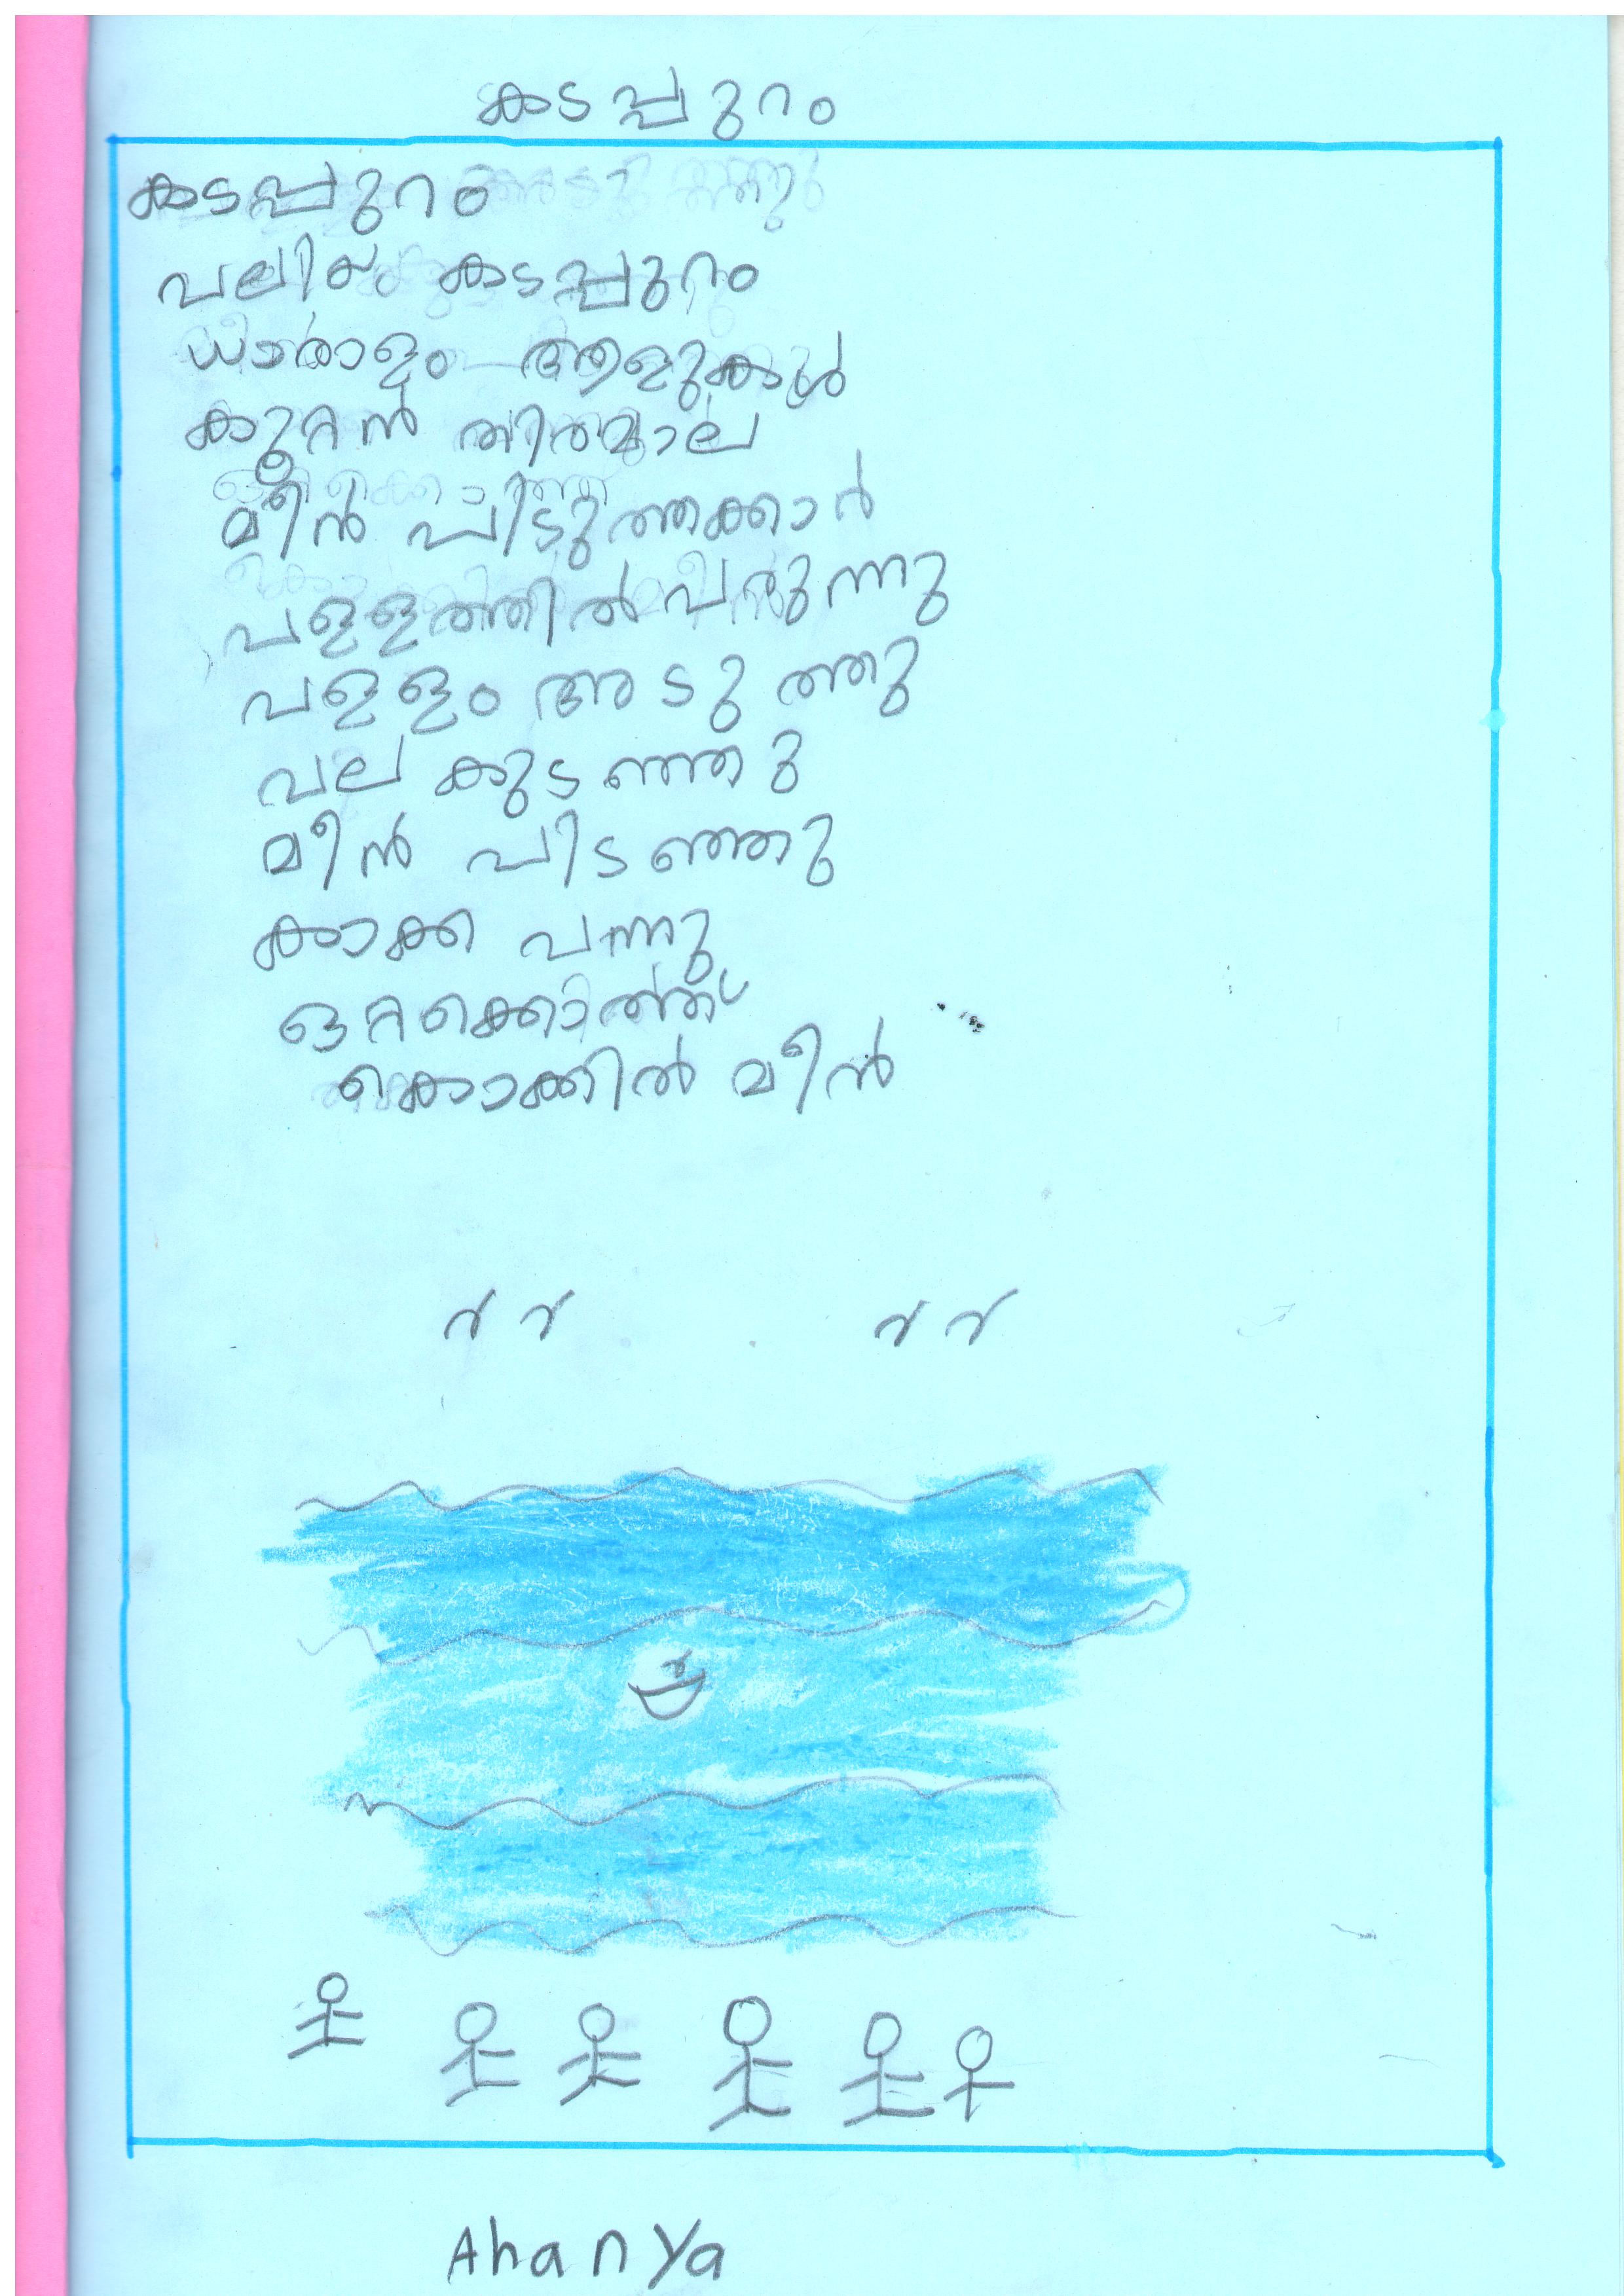 കടപ്പുറം
കടപ്പുറം
പലിയ കടപ്പുറം
ധാരാളം ആളുകൾ
കൂറ്റൻ തിരമാല
മീൻ പിടുത്തക്കാർ
പള്ളത്തിൽ പരുന്നു
പള്ളം അടുത്തു
പല കുടഞ്ഞു
മീൻ പിടഞ്ഞു
കാക്ക പന്നു
ഒറ്റക്കൊത്ത്
കൊക്കിൽ മീൻ
Ahanya